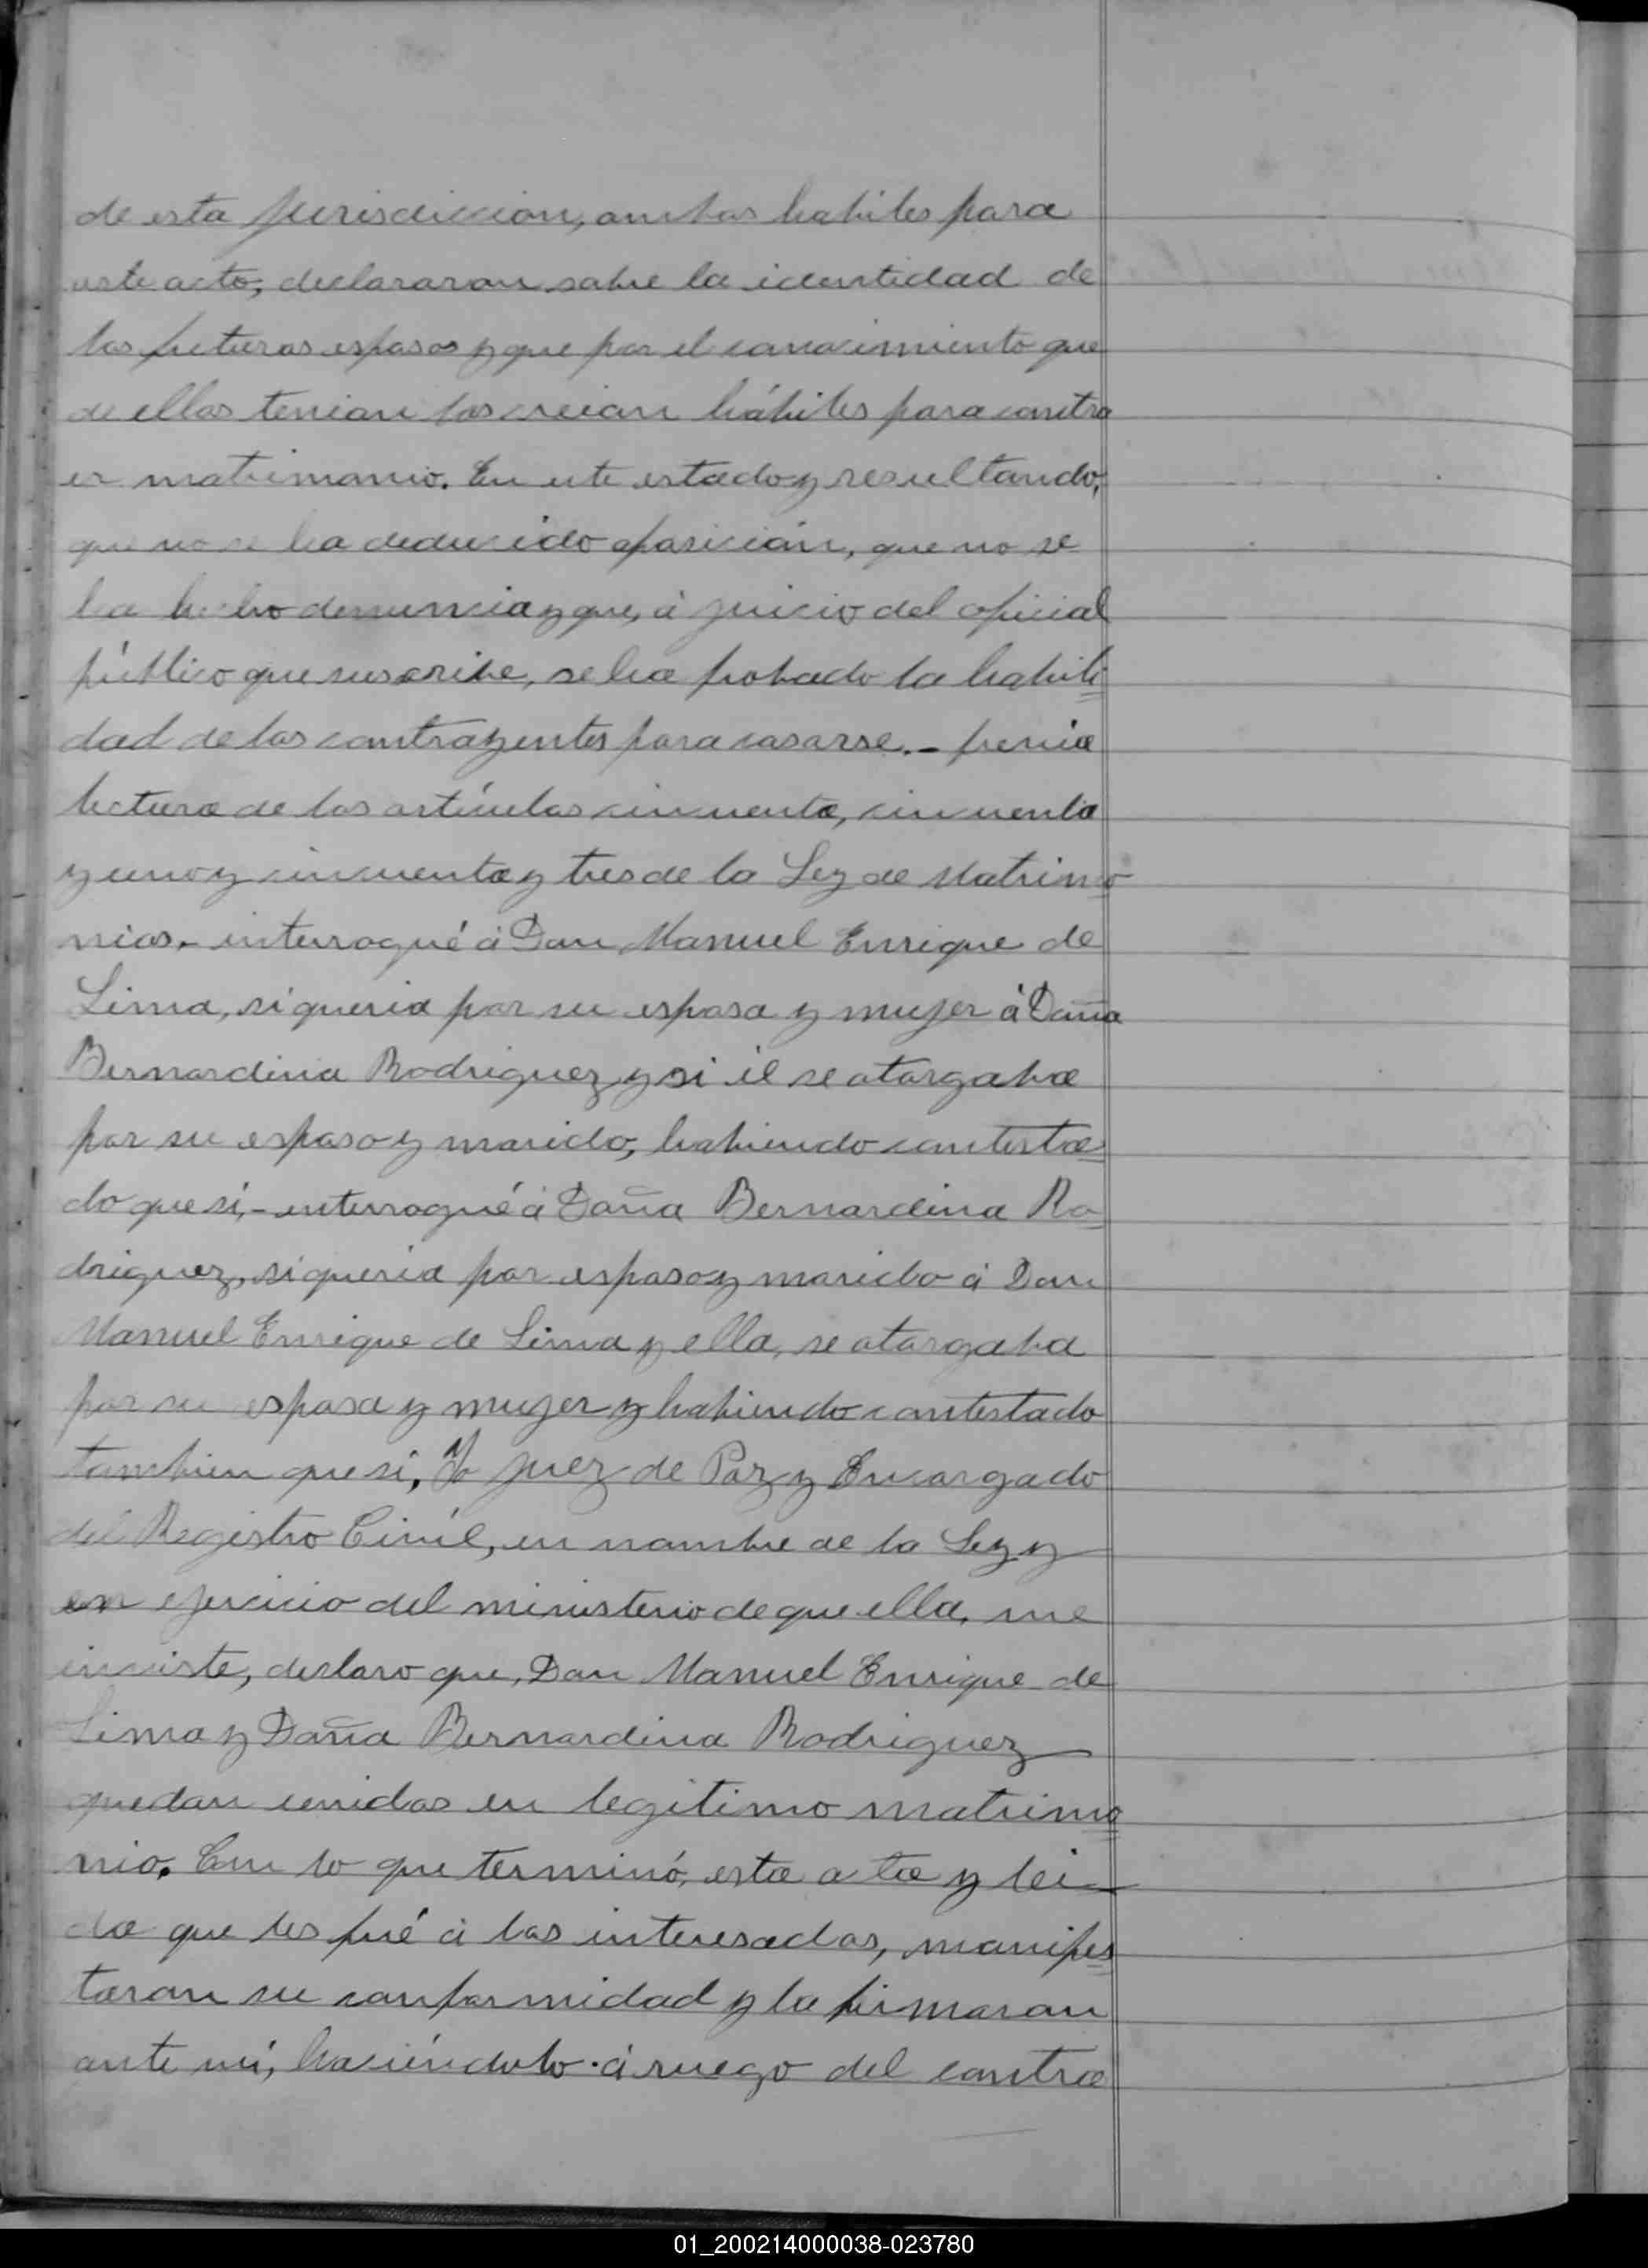 de esta Jurisdiccion, ambos habiles para
este acto, declararon sobre la identidad de
los futuros esposos y que por el conocimiento que
de ellos tenian los creian hábiles para contra
er matrimonio. En este estado y resultando,
que no se ha deducido oposición, que no se
ha hecho denuncia y que, á juicio del oficial
público que suscribe, se ha probado la habili
dad de los contrayentes para casarse.- previa
lectura de los artículos cincuenta, cincuenta
y uno y cincuenta y tres de la Ley de Matrimo
nios.- interrogué á Don Manuel Enrique de
Lima, si queria por su esposa y mujer á Doña
Bernardina Rodriguez y si él se otorgaba
por su esposo y marido, habiendo contesta
do que sí,- interrogué á Doña Bernardina Ro
driguez, si queria por esposo y marido á Don
Manuel Enrique de Lima y ella, se otorgaba
por su esposa y mujer y habiendo contestado
tambien que sí, Yo Juez de Paz y Encargado
del Registro Civíl, en nombre de la Ley y
en ejercicio del ministerio de que ella, me
inviste, declaro que, Don Manuel Enrique de
Lima y Doña Bernardina Rodriguez
quedan unidos en legitimo matrimo
nio. Con lo que terminó, esta acta y lei-
da que les fué á los interesados, manifes
taron su conformidad y la firmaron
ante mí, haciéndolo á ruego del contra
01_200214000038-023780